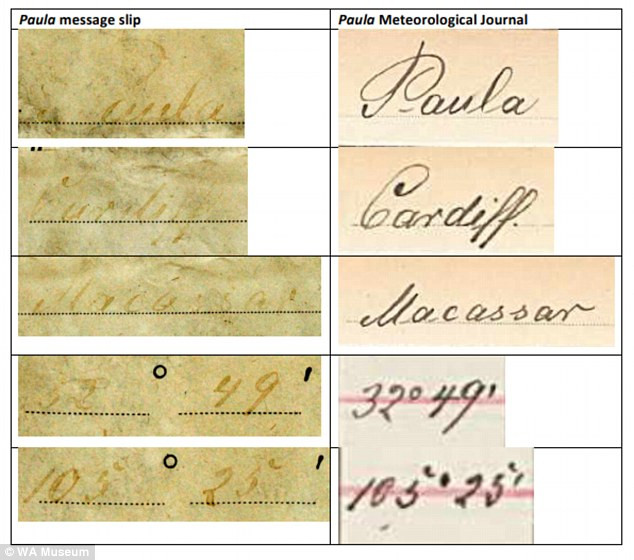 Paula message slip	Paula Meteorological Journal
aula	Paula
Cardi	Cardiff.
Macassar	Macassar
32° 49'	32° 49'
105° 25'	105° 25'
© WA Museum